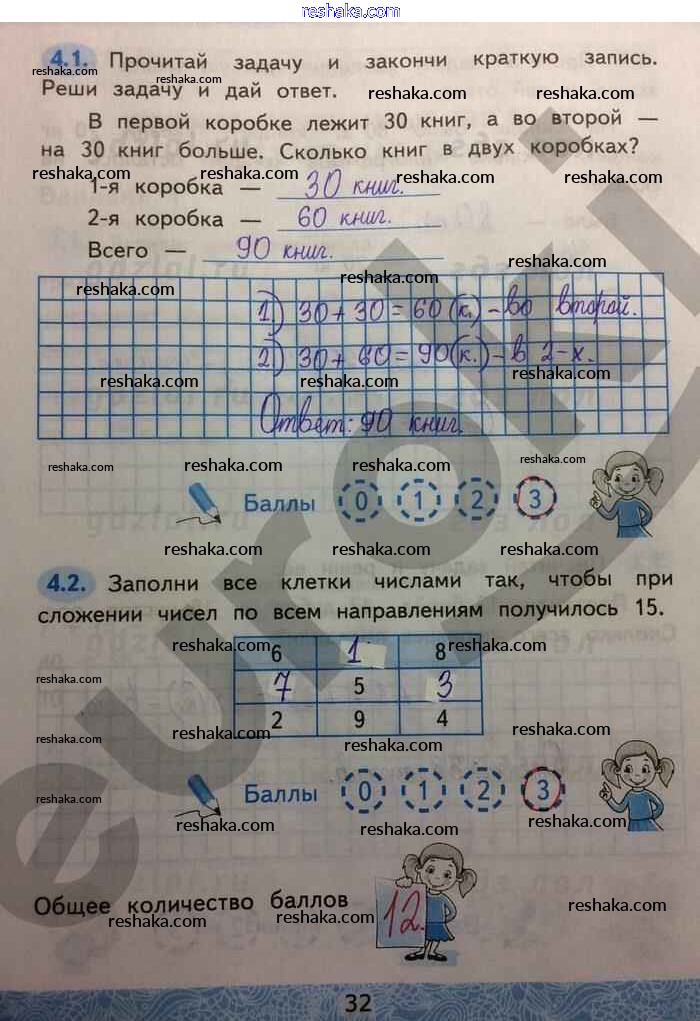 reshaka.com
4.1. Прочитай задачу и закончи краткую запись.
reshaka.com reshaka.com
Реши задачу и дай ответ. reshaka.com reshaka.com
В первой коробке лежит 30 книг, а во второй —
на 30 книг больше. Сколько книг в двух коробках?
reshaka.com reshaka.com reshaka.com reshaka.com
1-я коробка — 30 книг.
2-я коробка — 60 книг.
Всего — 90 книг.
reshaka.com reshaka.com
1) 30 + 30 = 60 (к.) – во второй.
2) 30 + 60 = 90 (к.) – в 2-х.
reshaka.com reshaka.com reshaka.com
Ответ: 90 книг.
reshaka.com reshaka.com reshaka.com reshaka.com
Баллы 0 1 2 3
reshaka.com reshaka.com reshaka.com
4.2. Заполни все клетки числами так, чтобы при
сложении чисел по всем направлениям получилось 15.
reshaka.com reshaka.com reshaka.com
6 1 8
reshaka.com reshaka.com
7 5 3
2 9 4
reshaka.com reshaka.com reshaka.com
Баллы 0 1 2 3
reshaka.com
reshaka.com reshaka.com reshaka.com
Общее количество баллов 12.
reshaka.com reshaka.com reshaka.com reshaka.com
32
euroki